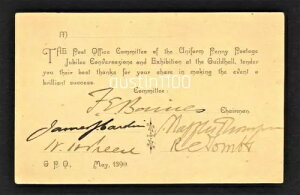 THE Post Office Committee of the Uniform Penny Postage
Jubilee Conversazione and Exhibition at the Guildhall, tender
you their best thanks for your share in making the event a
brilliant success.
Committee:
F.E. Baines
Chairman
James
G. P. O. May, 1890